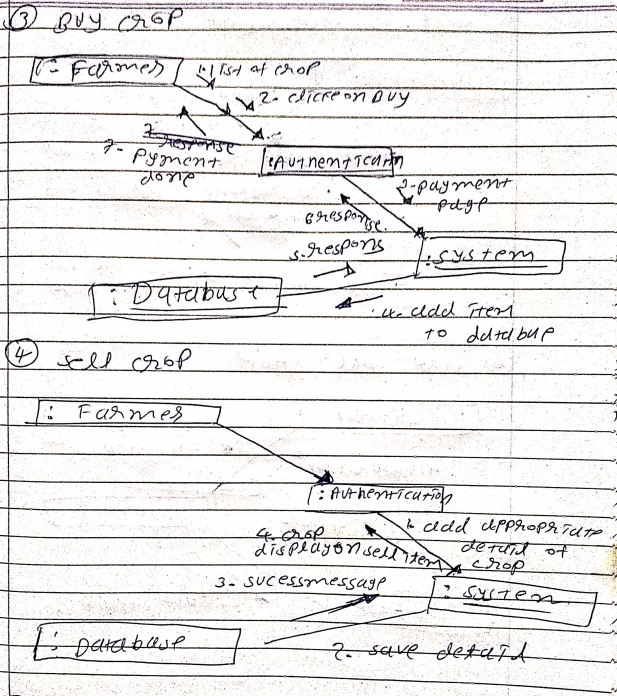 ③ Buy crop
: Farmer
1. list of crop
2. clickeon Buy
7. response
7- Pyment
done
: Authentication
3-payment
page
6 response
5. respons
: system
: Database
4. add item
to databae
④ sell crop
: Farmer
: Authentication
1. add appropriate
detail of
crop
4. crop
display on sell item
3- sucessmessage
: system
: Database
2- save detail